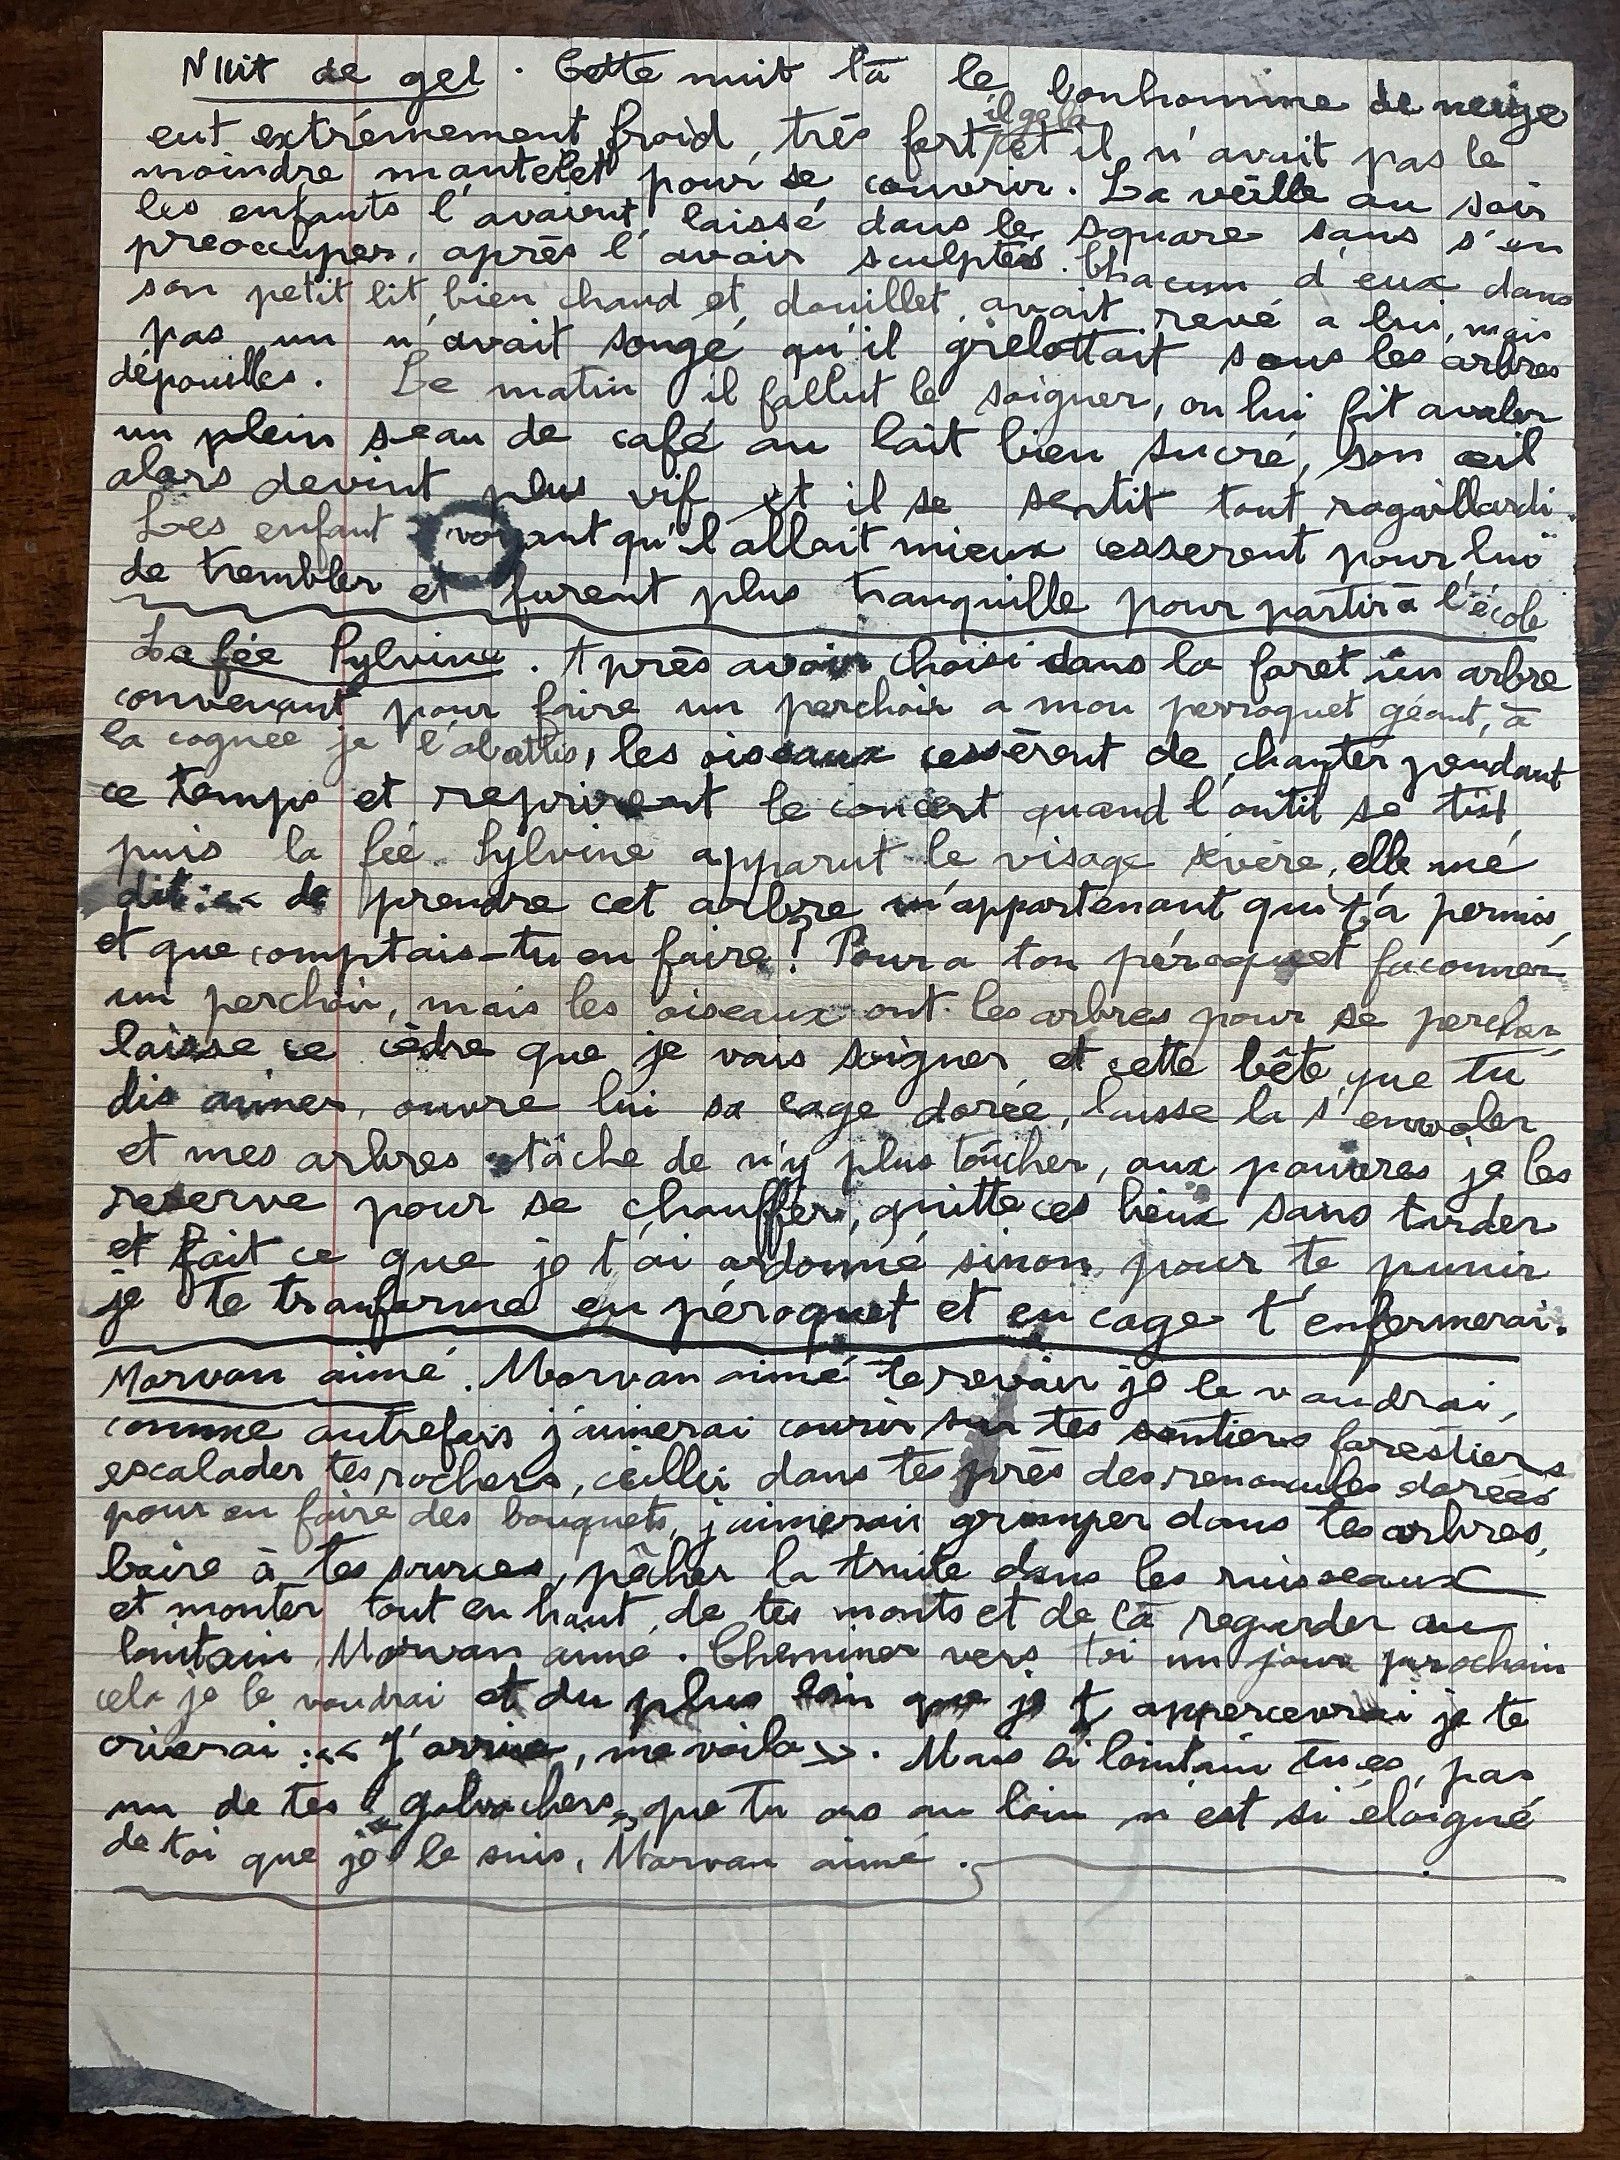 Nuit de gel. Cette nuit là le bonhomme de neige
eut extrêmement froid, très fort il gela et il n'avait pas le
moindre mantelet pour se couvrir. La veille au soir
les enfants l'avaient laissé dans le square sans s'en
preoccuper, après l'avoir sculptés. Chacun d'eux dans
son petit lit bien chaud et douillet, avait revé a lui, mais
pas un n'avait songé qu'il grelottait sous les arbres
dépouilles. Le matin il fallut le soigner, on lui fit avaler
un plein seau de café au lait bien sucré, son œil
alors devint plus vif et il se sentit tout ragaillardi.
Les enfant voyant qu'il allait mieux cesserent pour lui
de trembler et furent plus tranquille pour partir à l'école
La fée Sylvine. Après avoir choisi dans la foret un arbre
convenant pour faire un perchoir a mon perroquet géant, à
la cognée je l'abattis, les oiseaux cessèrent de chanter pendant
ce temps et reprirent le concert quand l'outil se tût,
puis la fée Sylvine apparut le visage sévère, elle me
dit : « de prendre cet arbre m'appartenant qui t'a permis,
et que comptais-tu en faire ? Pour a ton péroquet façonner
un perchoir, mais les oiseaux ont les arbres pour se percher,
laisse ce cèdre que je vais soigner et cette bête que tu
dis aimer, ouvre lui sa cage dorée, laisse la s'envoler
et mes arbres tâche de n'y plus toucher, aux pauvres je les
reserve pour se chauffer, quitte ces lieux sans tarder
et fait ce que je t'ai ordonné sinon pour te punir
je te tranforme en péroquet et en cage t'enfermerai.
Morvan aimé. Morvan aimé te revoir je le voudrai,
comme autrefois j'aimerai courir sur tes sentiers forestiers
escalader tes rochers, ceuilli dans tes près des renoncules dorées
pour en faire des bouquets, j'aimerais grimper dans tes arbres,
boire à tes sources, pêcher la truite dans les ruisseaux
et monter tout en haut de tes monts et de là regarder au
lointain Morvan aimé. Cheminer vers toi un jour prochain
cela je le voudrai et du plus loin que je t'appercevrai je te
crierai : « J'arrive, me voila ». Mais si lointain tu es, pas
un de tes « galvachers » que tu as au loin n'est si éloigné
de toi que je le suis, Morvan aimé.